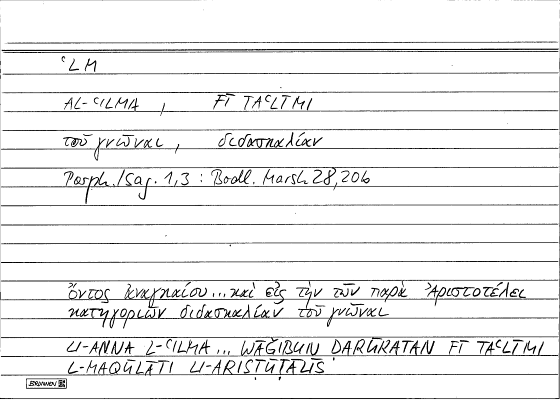 ʿLM
AL-ʿILMA , FĪ TAʿLĪMI
τοῦ γνῶναι , διδασκαλίαν
Porph./Isag. 1,3 : Bodl. Marsh 28, 20b
ὄντος ἀναγκαίου...καὶ εἰς τὴν τῶν παρὰ Ἀριστοτέλει
κατηγοριῶν διδασκαλίαν τοῦ γνῶναι
LI-ANNA L-ʿILMA ... WĀǦIBUN ḌARŪRATAN FĪ TAʿLĪMI
L-MAQŪLĀTI LI-ARISṬŪṬĀLĪS
BRUNNEN